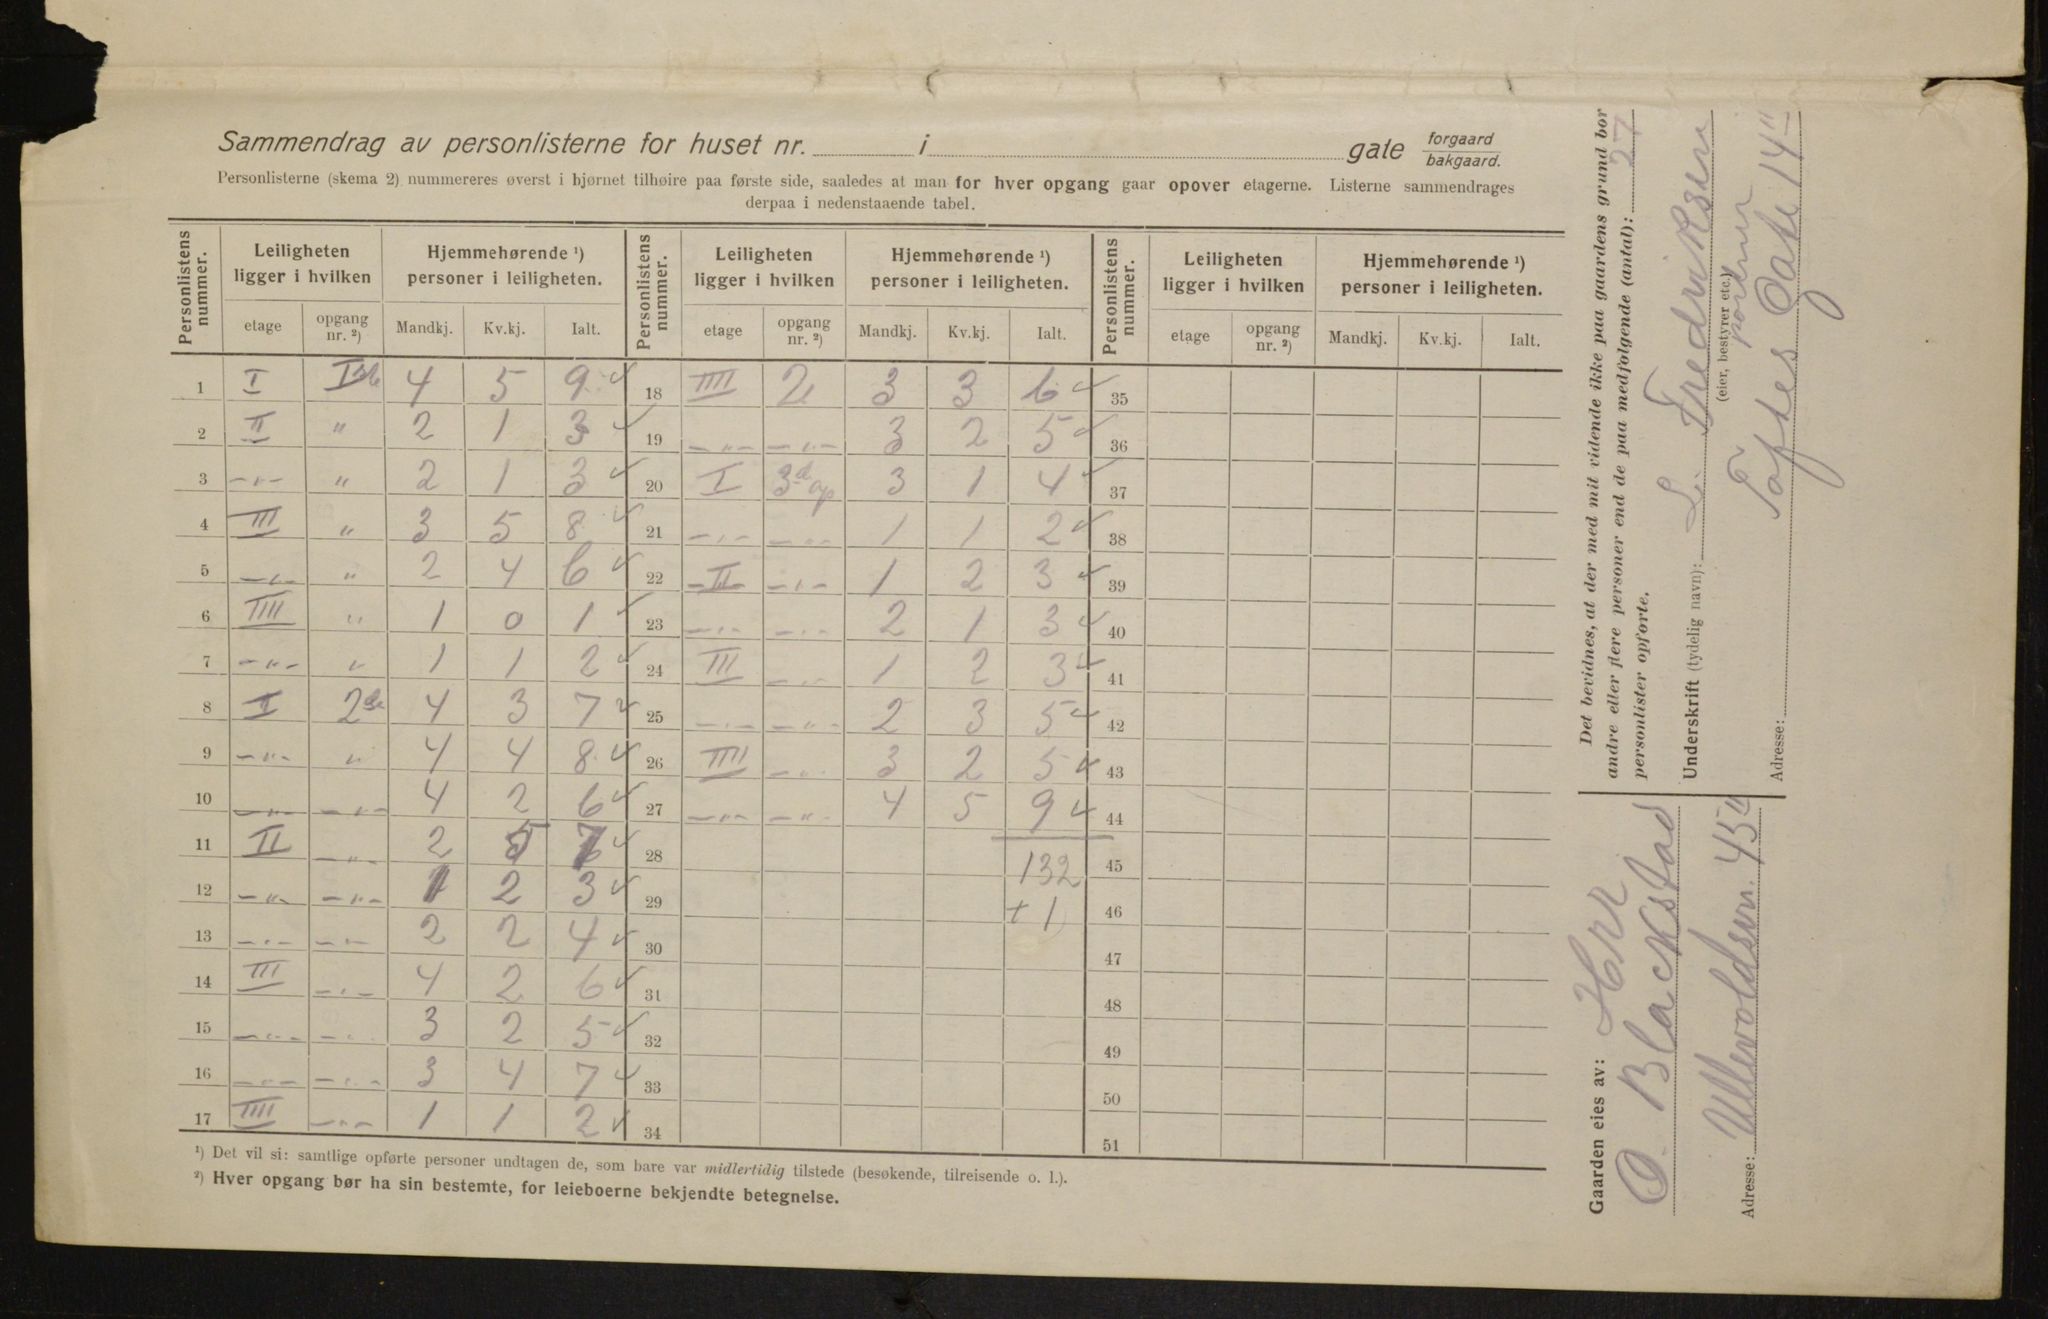 Sammendrag av personlisterne for huset nr. i gate forgaard bakgaard.
Personlisterne (skema 2) nummereres øverst i hjørnet tilhøire paa første side, saaledes at man for hver opgang gaar opover etagerne. Listerne sammendrages
derpaa i nedenstaaende tabel.
Personlistens nummer. Leiligheten ligger i hvilken Hjemmehørende ¹) personer i leiligheten. Personlistens nummer. Leiligheten ligger i hvilken Hjemmehørende ¹) personer i leiligheten. Personlistens nummer. Leiligheten ligger i hvilken Hjemmehørende ¹) personer i leiligheten.
etage opgang nr. ²) Mandkj. Kv.kj. Ialt. etage opgang nr. ²) Mandkj. Kv.kj. Ialt. etage opgang nr. ²) Mandkj. Kv.kj. Ialt.
1 I 4 5 9 ✓ 18 IIII 2 3 3 6 ✓ 35
2 II " 2 1 3 ✓ 19 -"- -"- 3 2 5 ✓ 36
3 -"- " 2 1 3 ✓ 20 I 3d op 3 1 4 ✓ 37
4 III " 3 5 8 ✓ 21 -"- -"- 1 1 2 ✓ 38
5 -"- " 2 4 6 ✓ 22 II -"- 1 2 3 ✓ 39
6 IIII " 1 0 1 ✓ 23 -"- -"- 2 1 3 ✓ 40
7 -"- " 1 1 2 ✓ 24 III -"- 1 2 3 ✓ 41
8 I 2de 4 3 7 ✓ 25 -"- -"- 2 3 5 ✓ 42
9 -"- " 4 4 8 ✓ 26 IIII -"- 3 2 5 ✓ 43
10 -"- -"- 4 2 6 ✓ 27 -"- -"- 4 5 9 ✓ 44
11 II -"- 2 5 7 ✓ 28 132 45
12 -"- -"- 1 2 3 ✓ 29 + 1 46
13 -"- -"- 2 2 4 ✓ 30 47
14 III -"- 4 2 6 ✓ 31 48
15 -"- -"- 3 2 5 ✓ 32 49
16 -"- -"- 3 4 7 ✓ 33 50
17 IIII -"- 1 1 2 ✓ 34 51
¹) Det vil si: samtlige opførte personer undtagen de, som bare var midlertidig tilstede (besøkende, tilreisende o. l.).
²) Hver opgang bør ha sin bestemte, for leieboerne bekjendte betegnelse.
Det bevidnes, at der med mit vidende ikke paa gaardens grund bor
andre eller flere personer end de paa medfølgende (antal): 27
personlister opførte.
Underskrift (tydelig navn): L. Fredriksen
(eier, bestyrer etc.)
Adresse: Toftes Gate 14"
Gaarden eies av: Hrr
O. Blackstad
Adresse: Ullevoldsvn. 45"